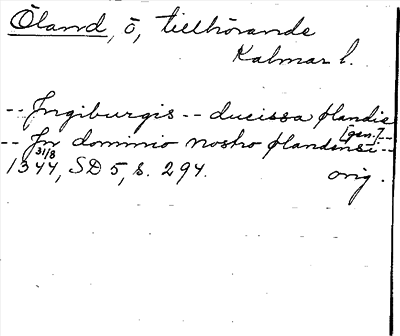 Öland, ö, tillhörande
Kalmar l.
-- Ingiburgis -- ducissa ølandie
[gen.] --
-- In dominio nostro ølandensi --
31/8
1344, SD 5, s. 294. orig.